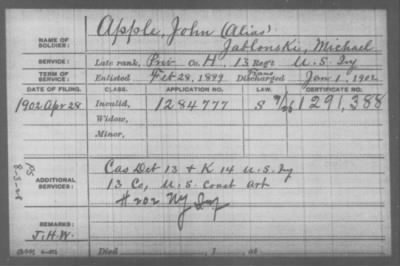 NAME OF SOLDIER: Apple, John (Alias)
Jablonski, Michael
SERVICE: Late rank, Priv Co. H, 13 Reg't U. S. Inf
TERM OF SERVICE: Enlisted Feb 28, 1899 Discharged Jan 1, 1902
DATE OF FILING. CLASS. APPLICATION NO. LAW. CERTIFICATE NO.
1902 Apr 28 Invalid, 1284777 1291,388
Widow,
Minor,
ADDITIONAL SERVICES: Cas Det 13 + K 14 U. S. Inf
13 Co, U. S. Coast Art
# 202 NY Inf
REMARKS:
J. H. W.
Died , 1 , at